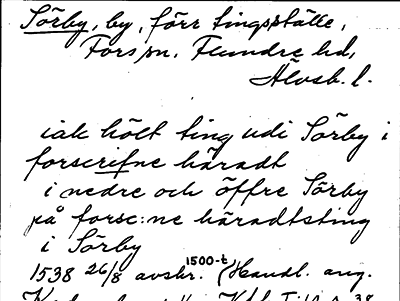 Sörby, by, förr tingsställe,
Fors sn. Flundre hd,
Älvsb. l.
iak hölt ting udi Sörby i
forscrifne häradt
i nedre och öffre Sörby
på forsc:ne häradtsting
i Sörby
1538 26/8 avskr. 1500-t (Handl. ang.